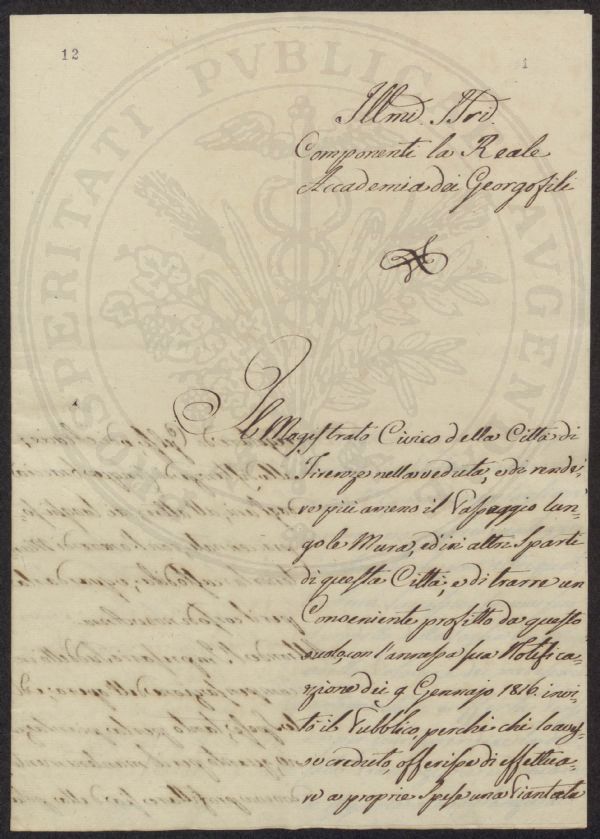 12
1
PROSPERITATI PVBLICAE AVGENDAE
Illmi. SSri.
Componenti la Reale
Accademia dei Georgofili
Il Magistrato Civico della Città di
Firenze nella veduta, e di rende-
re più ameno il Passeggio lun-
go le Mura, ed in altri Sparte
di questa Città, e di trarre un
Conveniente profitto da questo
suolo, con l'annessa sua Notifica-
zione dei 9 Gennajo 1816. invi-
tò il Pubblico, perchè chi lo aves-
se creduto, offerisse di effettua-
re a proprie Spese una Piantata